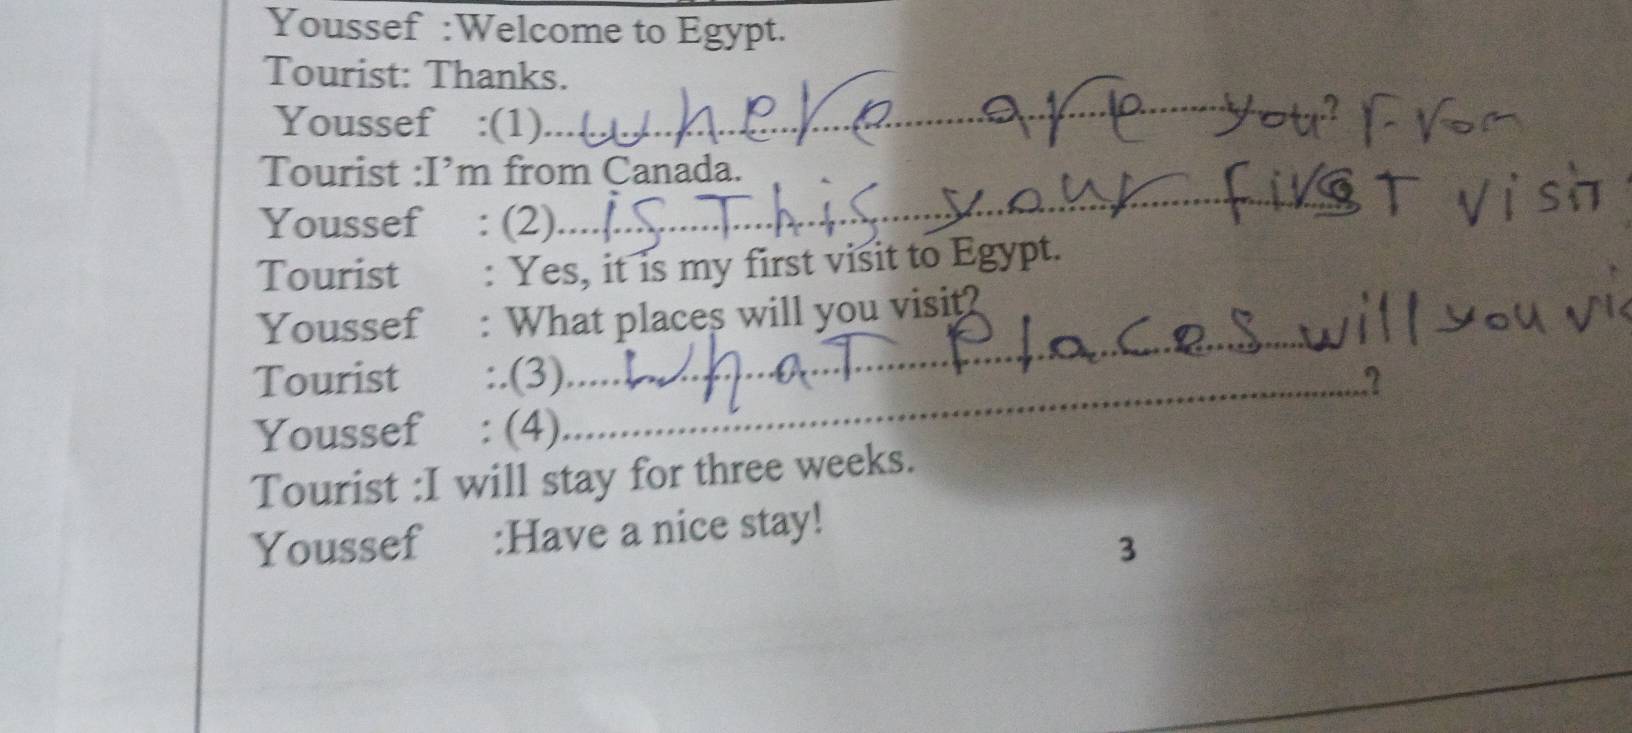 Youssef :Welcome to Egypt.
Tourist: Thanks.
Youssef :(1)....where are you? From
Tourist :I'm from Canada.
Youssef : (2)....is This your first visit
Tourist : Yes, it is my first visit to Egypt.
Youssef : What places will you visit?
Tourist :.(3).....what Places will you vis
Youssef : (4)..............................?
Tourist :I will stay for three weeks.
Youssef :Have a nice stay!
3